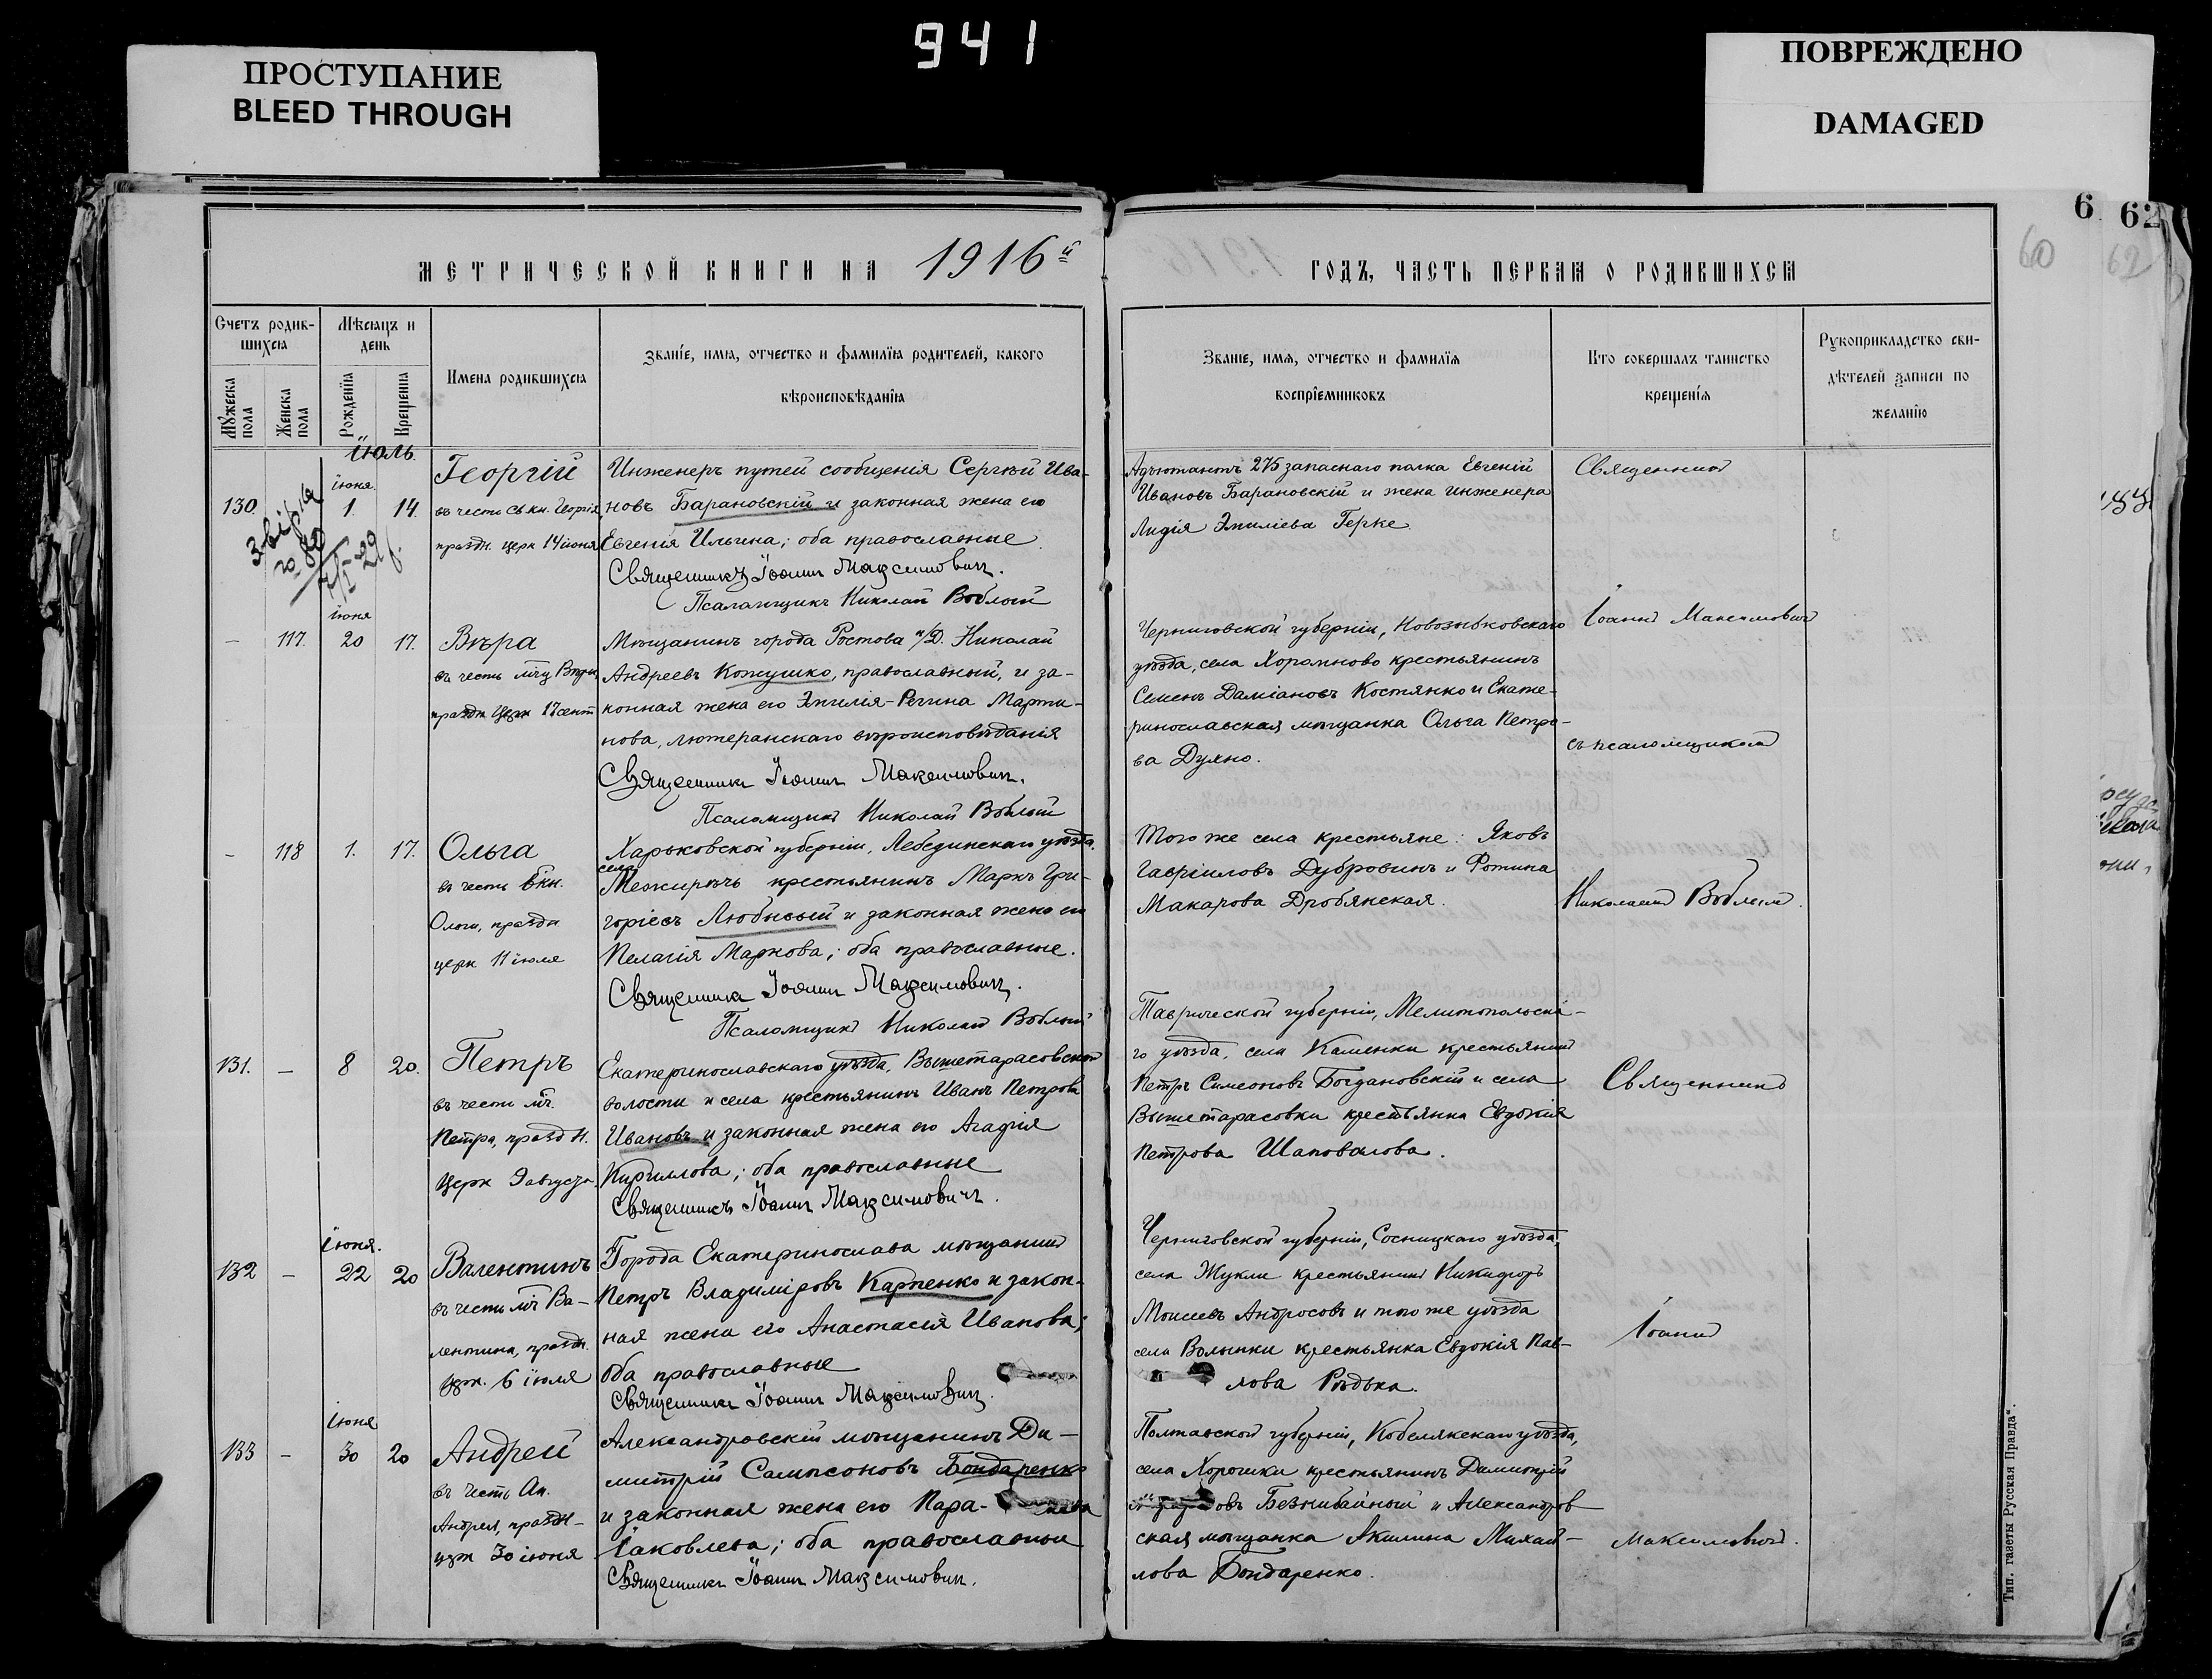 941
ПРОСТУПАНИЕ
BLEED THROUGH
ПОВРЕЖДЕНО
DAMAGED
6 62
60 62
МЕТРИЧЕСКОЙ КНИГИ НА 1916й
ГОДЪ, ЧАСТЬ ПЕРВАЯ О РОДИВШИХСЯ
Счетъ родив-
шихся
Мѣсяцъ и
день
Мужеска
пола
Женска
пола
Рожденія
Крещенія
Имена родившихся
Званіе, имя, отчество и фамилія родителей, какого
вѣроисповѣданія
Званіе, имя, отчество и фамилія
воспріемниковъ
Кто совершалъ таинство
крещенія
Рукоприкладство сви-
дѣтелей записи по
желанію
іюль.
іюня.
130 1. 14.
Георгій
въ честь св. кн. Георгія,
праздн. церк 14 іюня
Инженеръ путей сообщенія Сергѣй Ива-
новъ Барановскій и законная жена его
Евгенія Ильина; оба православные
Священникъ Іоаннъ Максимовичъ.
Псаломщикъ Николай Воблый
Адъютантъ 275 запаснаго полка Евгеній
Ивановъ Барановскій и жена инженера
Лидія Эмиліева Герке
Священникъ
іюня
– 117. 20 17.
Вѣра
въ честь мч̃ц Вѣры,
праздн церк 17 сент
Мѣщанинъ города Ростова н/Д. Николай
Андреевъ Кожушко, православный, и за-
конная жена его Эмилія-Регина Марти-
нова, лютеранскаго вѣроисповѣданія
Священникъ Іоаннъ Максимовичъ.
Псаломщикъ Николай Воблый
Черниговской губерніи, Новозыбковскаго
уѣзда, села Хоромново крестьянинъ
Семенъ Даміановъ Костянко и Екате-
ринославская мѣщанка Ольга Петро-
ва Духно.
Іоаннъ Максимовичъ
съ псаломщикомъ
– 118 1. 17.
Ольга
въ честь бл̃кн.
Ольги, праздн
церк 11 іюля
Харьковской губерніи, Лебединскаго уѣзда,
села
Межирѣчь крестьянинъ Маркъ Гри-
горіевъ Любивый и законная жена его
Пелагія Маркова; оба православные.
Священникъ Іоаннъ Максимовичъ.
Псаломщикъ Николай Воблый
Того же села крестьяне: Яковъ
Гавріиловъ Дубровинъ и Фотина
Макарова Дробянская.
Николаемъ Воблымъ.
131. – 8 20.
Петръ
въ честь мч̃.
Петра, праздн.
церк 9 августа.
Екатеринославскаго уѣзда, Вышетарасовской
волости и села крестьянинъ Иванъ Петровъ
Ивановъ и законная жена его Агафія
Кириллова; оба православные
Священникъ Іоаннъ Максимовичъ.
Таврической губерніи, Мелитопольска-
го уѣзда, села Каменки крестьянинъ
Петръ Симеоновъ Богдановскій и села
Вышетарасовки крестьянка Евдокія
Петрова Шаповалова.
Священникъ
іюня.
132 – 22 20
Валентинъ
въ честь мч̃ Ва-
лентина, праздн.
церк. 6 іюля
Города Екатеринослава мѣщанинъ
Петръ Владиміровъ Карпенко и закон-
ная жена его Анастасія Иванова;
оба православные
Священникъ Іоаннъ Максимовичъ.
Черниговской губерніи, Сосницкаго уѣзда,
села Жукли крестьянинъ Никифоръ
Моисеевъ Андросовъ и того же уѣзда
села Волынки крестьянка Евдокія Пав-
лова Рѣдька.
Іоаннъ
іюня
133 – 30 20
Андрей
въ честь Ап.
Андрея, праздн-
церк 30 іюня
Александровскій мѣщанинъ Ди-
митрій Сампсоновъ Бондаренко
и законная жена его Пара-
Іаковлева; оба православные
Священникъ Іоаннъ Максимовичъ.
Полтавской губерніи, Кобелякскаго уѣзда,
села Хорошки крестьянинъ Димитрій
овъ Безкибайный и Александров
ская мѣщанка Акилина Михай-
лова Бондаренко.
Максимовичъ.
Тип. газеты Русская Правда".